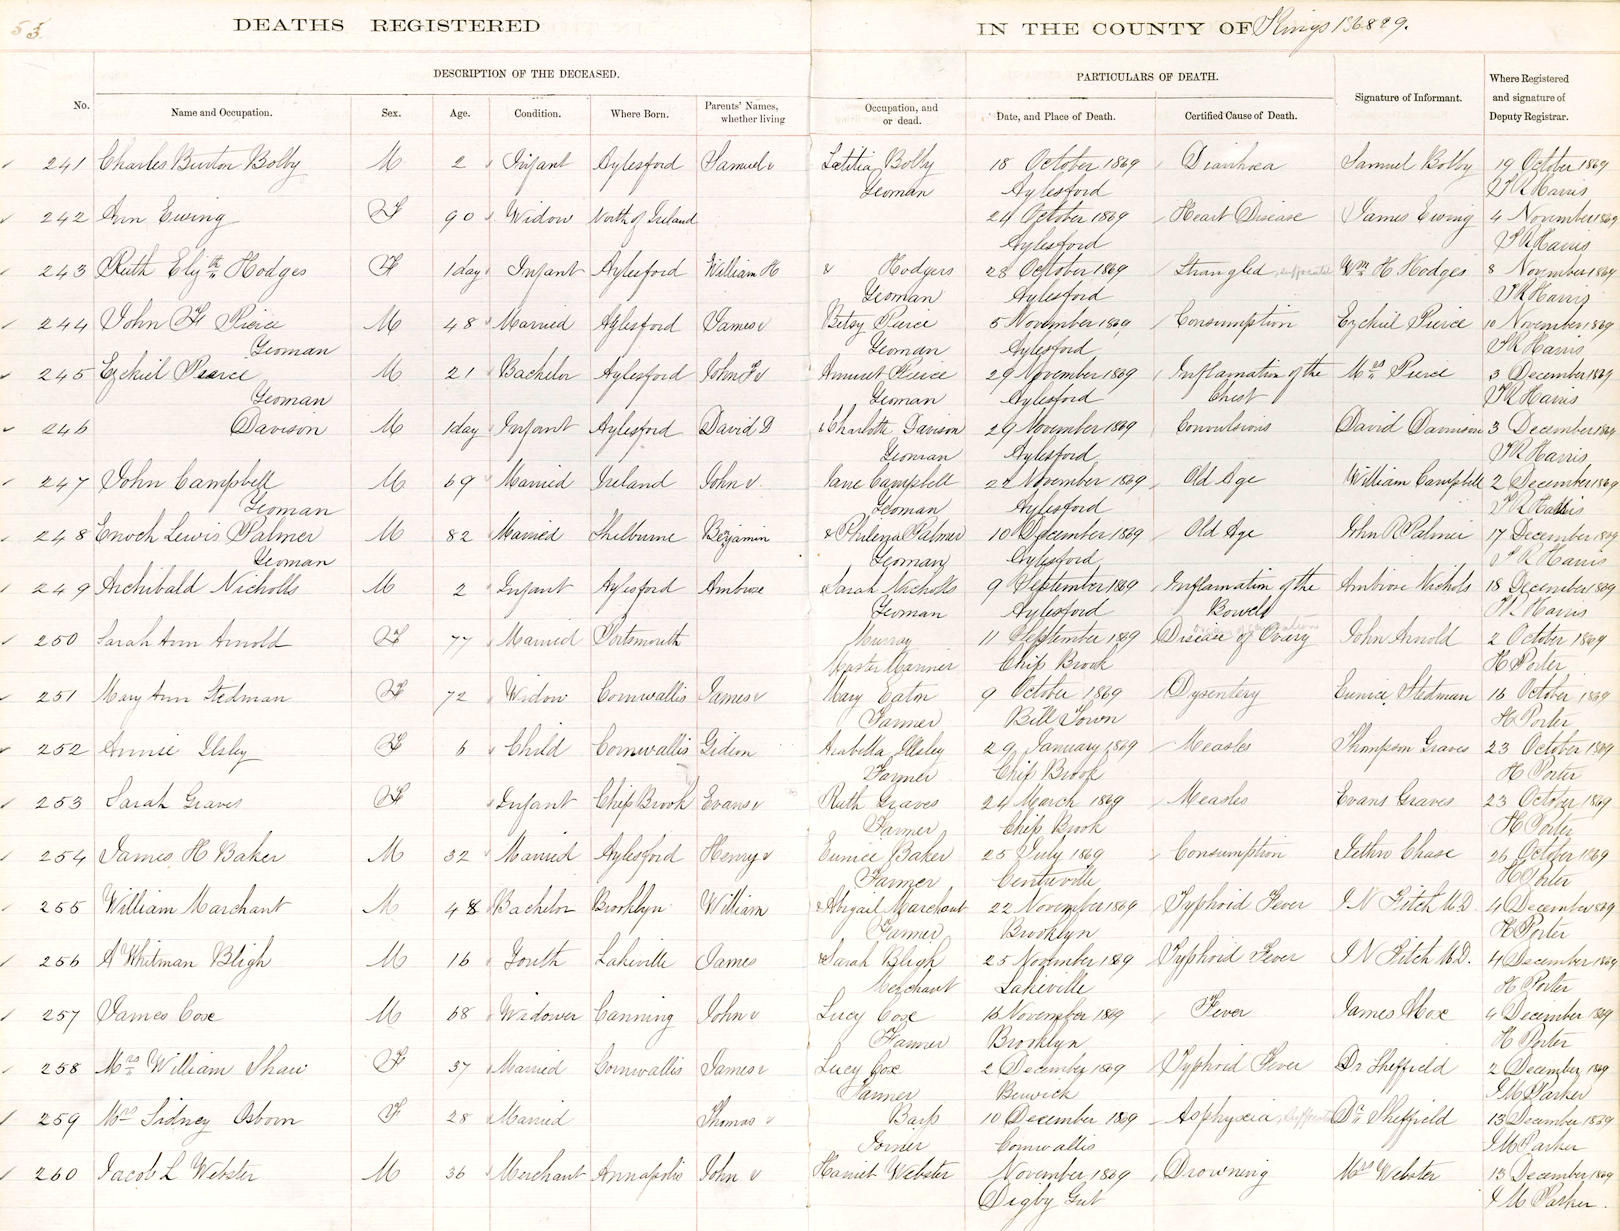 53
DEATHS REGISTERED IN THE COUNTY OF Kings 1869.
DESCRIPTION OF THE DECEASED. PARTICULARS OF DEATH.
No. Name and Occupation. Sex. Age. Condition. Where Born. Parents' Names, whether living Occupation, and or dead. Date, and Place of Death. Certified Cause of Death. Signature of Informant. Where Registered and signature of Deputy Registrar.
241 Charles Burton Bolby M 2 Infant Aylesford Samuel & Letitia Bolby 18 October 1869 Diarrhœa Samuel Bolby 19 October 1869
Yeoman Aylesford T R Harris
242 Ann Ewing F 90 Widow North of Ireland 24 October 1869 Heart Disease James Ewing 4 November 1869
Aylesford T R Harris
243 Ruth Elizth Hodges F 1 day Infant Aylesford William H & Hodgers 28 October 1869 Strangled Wm H Hodges 8 November 1869
Yeoman Aylesford T R Harris
244 John F Pierce M 48 Married Aylesford James & Betsy Pierce 5 November 1869 Consumption Ezekiel Pierce 10 November 1869
Yeoman Yeoman Aylesford T R Harris
245 Ezekiel Pearce M 21 Bachelor Aylesford John F & Pierce 29 November 1869 Inflamation of the Mrs Pierce 3 December 1869
Yeoman Yeoman Aylesford Chest T R Harris
246 Davison M 1 day Infant Aylesford David D & Charlotte Davison 29 November 1869 Convulsions David Davinson 3 December 1869
Yeoman Aylesford T R Harris
247 John Campbell M 69 Married Ireland John & Jane Campbell 22 November 1869 Old Age William Campbell 2 December 1869
Yeoman Yeoman Aylesford T R Harris
248 Enoch Lewis Palmer M 82 Married Shelburne Benjamin & Philena Palmer 10 December 1869 Old Age John R Palmer 17 December 1869
Yeoman Yeoman Aylesford T R Harris
249 Archibald Nicholls M 2 Infant Aylesford Ambrose & Sarah Nicholls 9 September 1869 Inflamation of the Ambrose Nichols 18 December 1869
Yeoman Aylesford Bowels T R Harris
250 Sarah Ann Arnold F 77 Married Portsmouth Murray 11 September 1869 Disease of Ovary John Arnold 2 October 1869
Master Mariner Chip Brook H Porter
251 Mary Ann Stedman F 72 Widow Cornwallis James & Mary Eaton 9 October 1869 Dysentery Eunice Stedman 16 October 1869
Farmer Bill Town H Porter
252 Annie Ilsley F 6 Child Cornwallis Gideon Arabella Illsley 29 January 1869 Measles Thompson Graves 23 October 1869
Farmer Chip Brook H Porter
253 Sarah Graves F Infant Chip Brook Evans & Ruth Graves 24 March 1869 Measles Evans Graves 23 October 1869
Farmer Chip Brook H Porter
254 James H Baker M 32 Married Aylesford Henry & Eunice Baker 25 July 1869 Consumption Jethro Chase 26 October 1869
Farmer Centreville H Porter
255 William Marchant M 48 Bachelor Brooklyn William & Abigail Marchant 22 November 1869 Typhoid Fever I N Fitch M.D. 4 December 1869
Farmer Brooklyn H Porter
256 A Whitman Bligh M 16 Youth Lakeville James & Sarah Bligh 25 November 1869 Typhoid Fever I N Fitch M.D. 4 December 1869
Merchant Lakeville H Porter
257 James Coxe M 68 Widower Canning John & Lucy Coxe 16 November 1869 Fever James Coxe 4 December 1869
Farmer Brooklyn H Porter
258 Mrs William Shaw F 37 Married Cornwallis James & Lucy Coxe 2 December 1869 Typhoid Fever Dr Sheffield 2 December 1869
Farmer Berwick J M Parker
259 Mrs Sidney Osborn F 28 Married Thomas & Barss 10 December 1869 Asphyxia Dr Sheffield 13 December 1869
Joiner Cornwallis J M Parker
260 Jacob L Webster M 36 Merchant Annapolis John & Harriet Webster November 1869 Drowning Mrs Webster 13 December 1869
Digby Gut J M Parker.